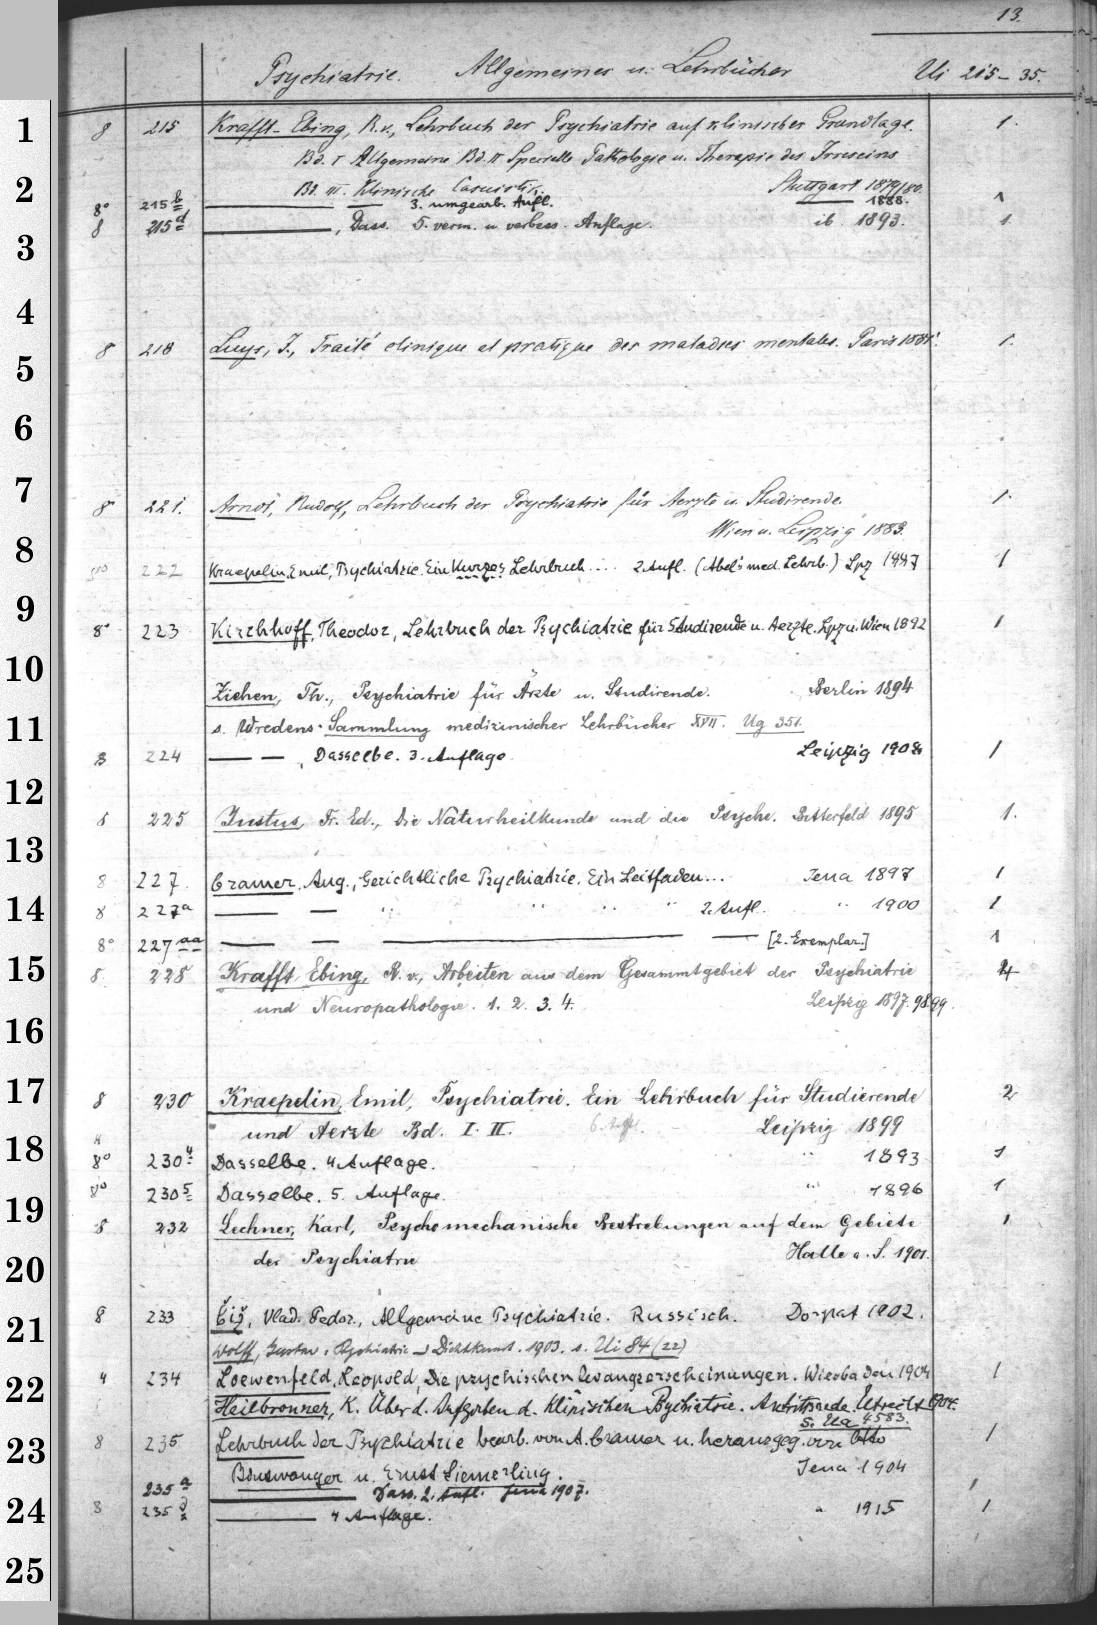 13.
Psychiatrie. Allgemeines u. Lehrbücher Ui 215–35.
8 215 Krafft-Ebing, R. v., Lehrbuch der Psychiatrie auf klinischer Grundlage. 1.
Bd. I Allgemeine Bd. II Specielle Pathologie u. Therapie des Irreseins
Bd. III. Klinische Casuistik. Stuttgart 1879/80.
8° 215 b ——— — 3. umgearb. Aufl. — 1888. 1
8 215 d ———, Dass. 5. verm. u. verbess. Auflage. ib. 1893. 1
8 218 Luys, J., Traité clinique et pratique des maladies mentales. Paris 1881. 1.
8 221. Arndt, Rudolf, Lehrbuch der Psychiatrie für Aerzte u. Studirende. 1.
Wien u. Leipzig 1883.
222 Kraepelin, Emil, Psychiatrie. Ein kurzes Lehrbuch ... 2 Aufl. (Abel's med. Lehrb.) Lpz 1887 1
8° 223 Kirchhoff, Theodor, Lehrbuch der Psychiatrie für Studirende u. Aerzte. Lpz u. Wien 1892 1
Ziehen, Th., Psychiatrie für Ärzte u. Studirende. Berlin 1894
s. Wredens Sammlung medizinischer Lehrbücher XVII. Ug 351.
8 224 — — , Dasselbe. 3. Auflage Leipzig 1908 1
8 225 Justus, Fr. Ed., Die Naturheilkunde und die Psyche. Bitterfeld 1895 1.
8 227. Cramer, Aug., Gerichtliche Psychiatrie. Ein Leitfaden... Jena 1897 1
8 227a — — " " " " 2. Aufl. " 1900 1
8° 227 aa — — ——— — [2. Exemplar.] 1
8. 228 Krafft Ebing, R. v., Arbeiten aus dem Gesammtgebiet der Psychiatrie 4
und Neuropathologie. 1. 2. 3. 4. Leipzig 1897. 98. 99.
8 230 Kraepelin, Emil, Psychiatrie. Ein Lehrbuch für Studierende 2
und Aerzte Bd. I. II. 6. Aufl. Leipzig 1899
8° 230 4 Dasselbe. 4 Auflage. " 1893 1
8° 230 5 Dasselbe. 5. Auflage. " 1896 1
8 232 Lechner, Karl, Psychomechanische Bestrebungen auf dem Gebiete 1
der Psychiatrie Halle a. S. 1901.
8 233 Čiž, Vlad. Fedor., Allgemeine Psychiatrie. Russisch. Dorpat 1902.
Wolff, Gustav, Psychiatrie u Dichtkunst. 1903. s. Ui 84 (22)
4 234 Loewenfeld, Leopold, Die psychischen Zwangserscheinungen. Wiesbaden 1904 1
Heilbronner, K. Über d. Aufgaben d. klinischen Psychiatrie. Antrittsrede. Utrecht 1904.
s. Ela 4583.
8 235 Lehrbuch der Psychiatrie bearb. von A. Cramer u. herausgeg. von Otto 1
Binswanger u. Ernst Siemerling. Jena 1904
235 a ——— Dass. 2. Aufl. Jena 1907. 1
8 235 ——— 4 Auflage. " 1915 1
1
2
3
4
5
6
7
8
9
10
11
12
13
14
15
16
17
18
19
20
21
22
23
24
25